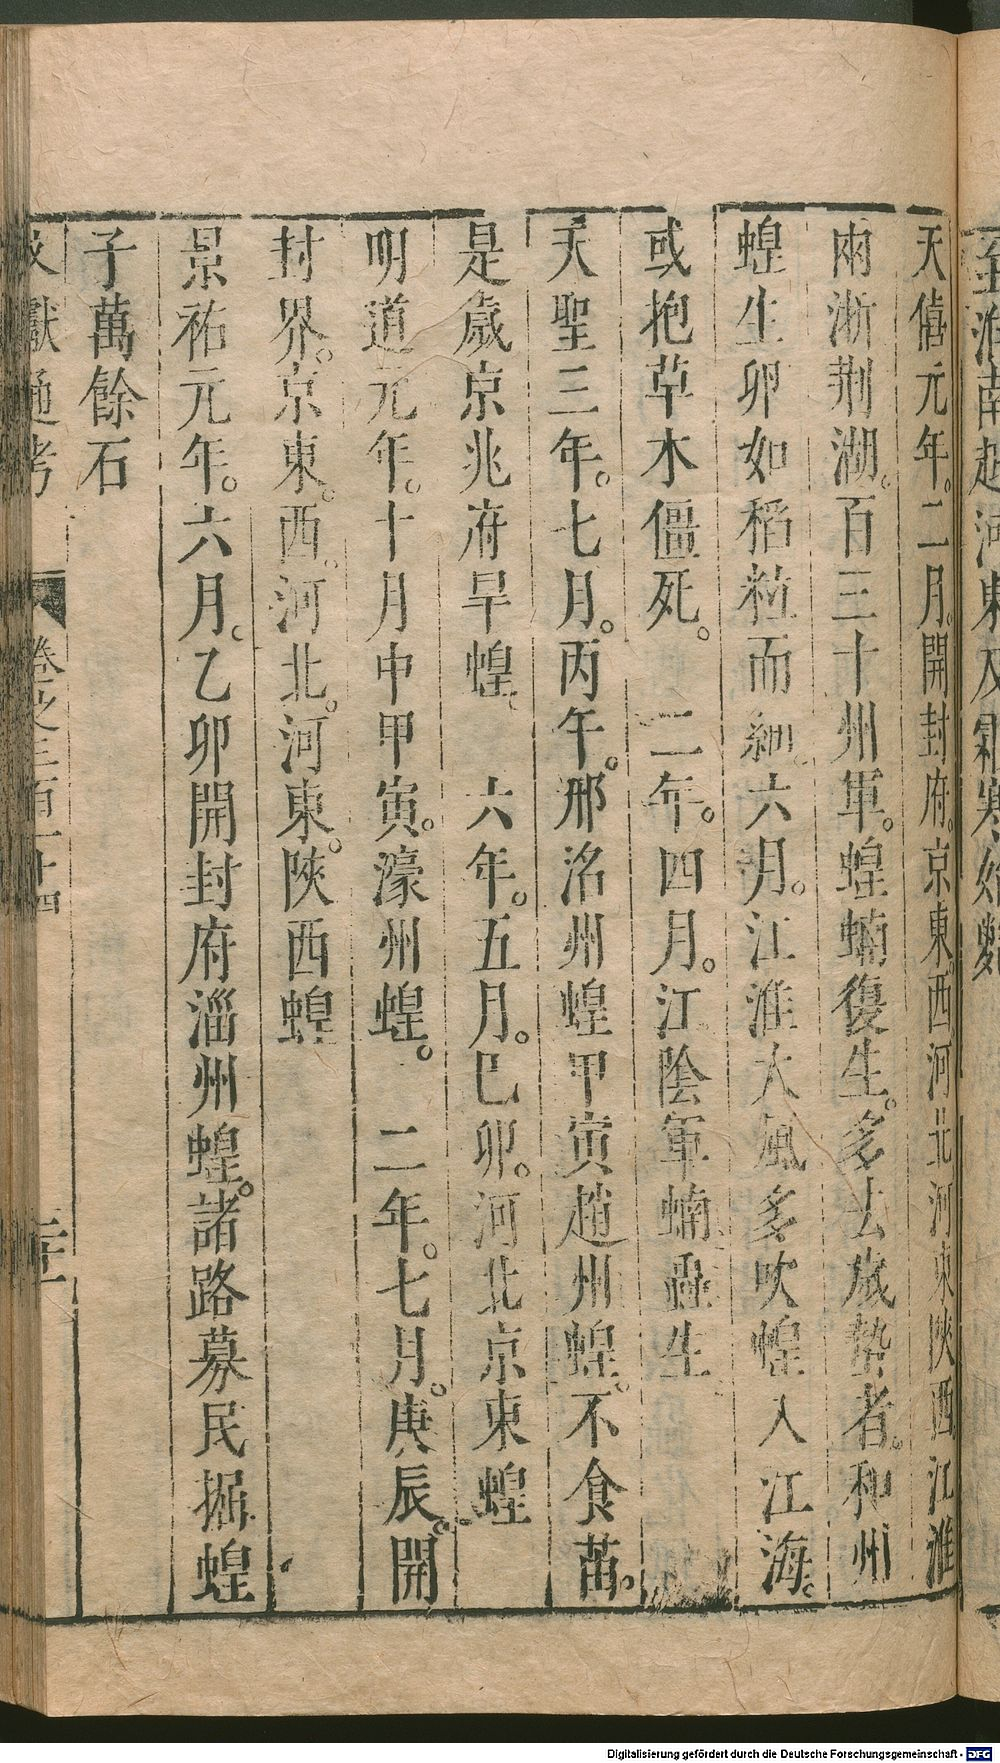 至淮南趁河東及霜寒始斃
天僖元年。二月。開封府。京東。西河北河東陝西江淮
兩浙荆湖。百三十州軍。蝗蝻復生。多去歲蟄者。和州
蝗生卵如稻粒而細。六月。江淮大風多吹蝗入江海。
或抱草木僵死。　二年。四月。江陰軍蝻蟲生
天聖三年。七月。丙午。邢洺州蝗甲寅趙州蝗。不食苗。
是歲京兆府旱蝗、　六年。五月。巳卯。河北京東蝗
明道元年。十月中甲寅。濠州蝗。　二年。七月。庚辰。開
封界。京東。西。河北。河東。陝西蝗
景祐元年。六月。乙卯開封府淄州蝗。諸路募民掘蝗
子萬餘石
文獻通考　卷之三百一十四